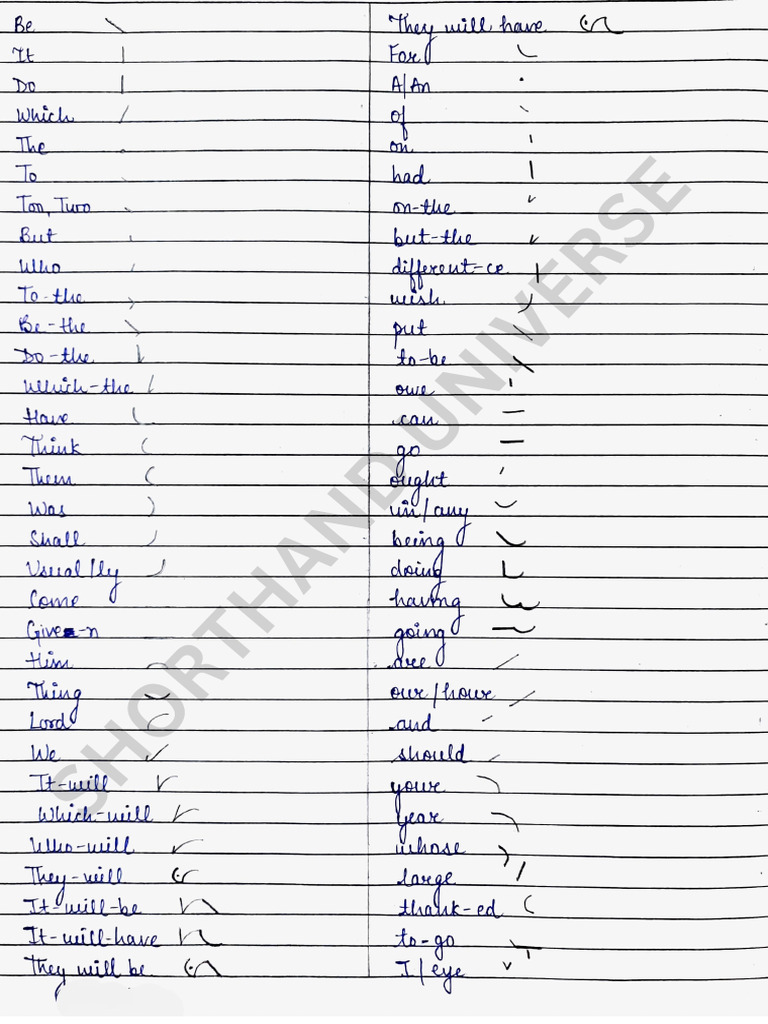 Be
It
Do
Which
The
To
Too, Two
But
Who
To-the
Be-the
Do-the
Which-the
Have
Think
Them
Was
Shall
Usual/ly
Come
Give-n
Him
Thing
Lord
We
It-will
Which-will
Who-will
They-will
It-will-be
It-will-have
They will be
They will have
For
A/An
of
on
had
on-the
but-the
different-ce
wish
put
to-be
owe
can
go
ought
in/any
being
doing
having
going
are
our/hour
and
should
your
year
whose
large
thank-ed
to-go
I/eye
SHORTHAND UNIVERSE